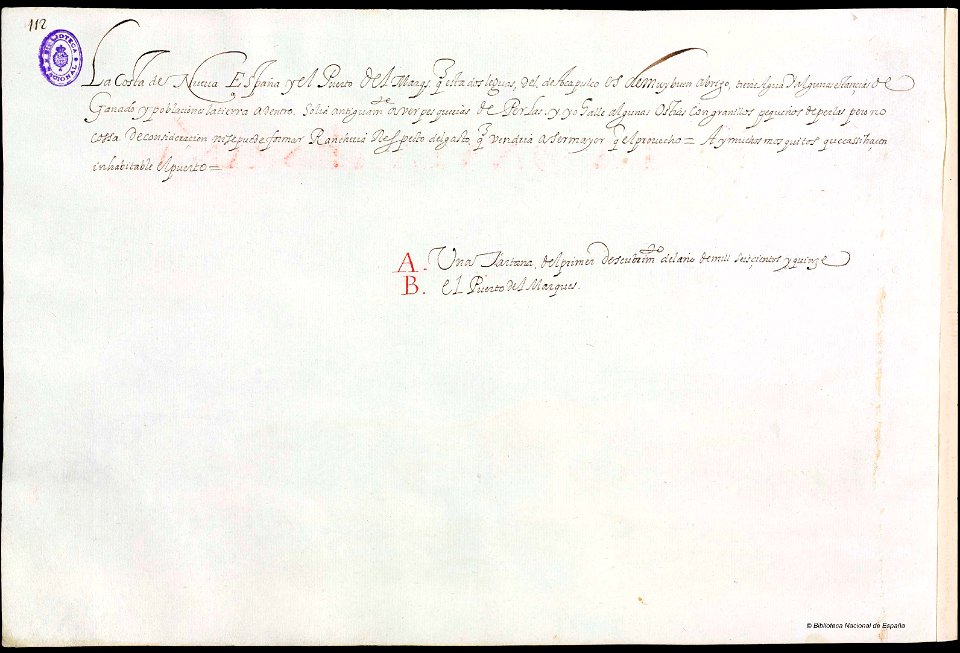 112
BIBLIOTECA NACIONAL
La Costa de Nueva España y el Puerto del Marqs. q esta dos leguas, del de Acapulco es de muy buen abrigo, tiene agua y algunas estancias de
Ganado, y poblacion la tierra adentro. Solia antiguamte aver pesquerias de Perlas, y yo halle algunas Ostias Con granillos pequeños de perlas pero no
cossa de consideracion ni se puede formar Rancheria Respeto del gasto, q vendria a ser mayor q el provecho = Ay muchos mosquitos que cassi haçen
inhabitable el puerto =
A. Una Tartana, del primer descubrimto del año de mill seisçientos y quinze
B. el Puerto del Marques.
© Biblioteca Nacional de España